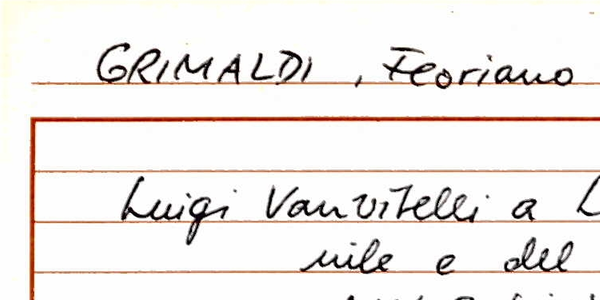 GRIMALDI, Floriano
Luigi Vanvitelli a L
nile e del